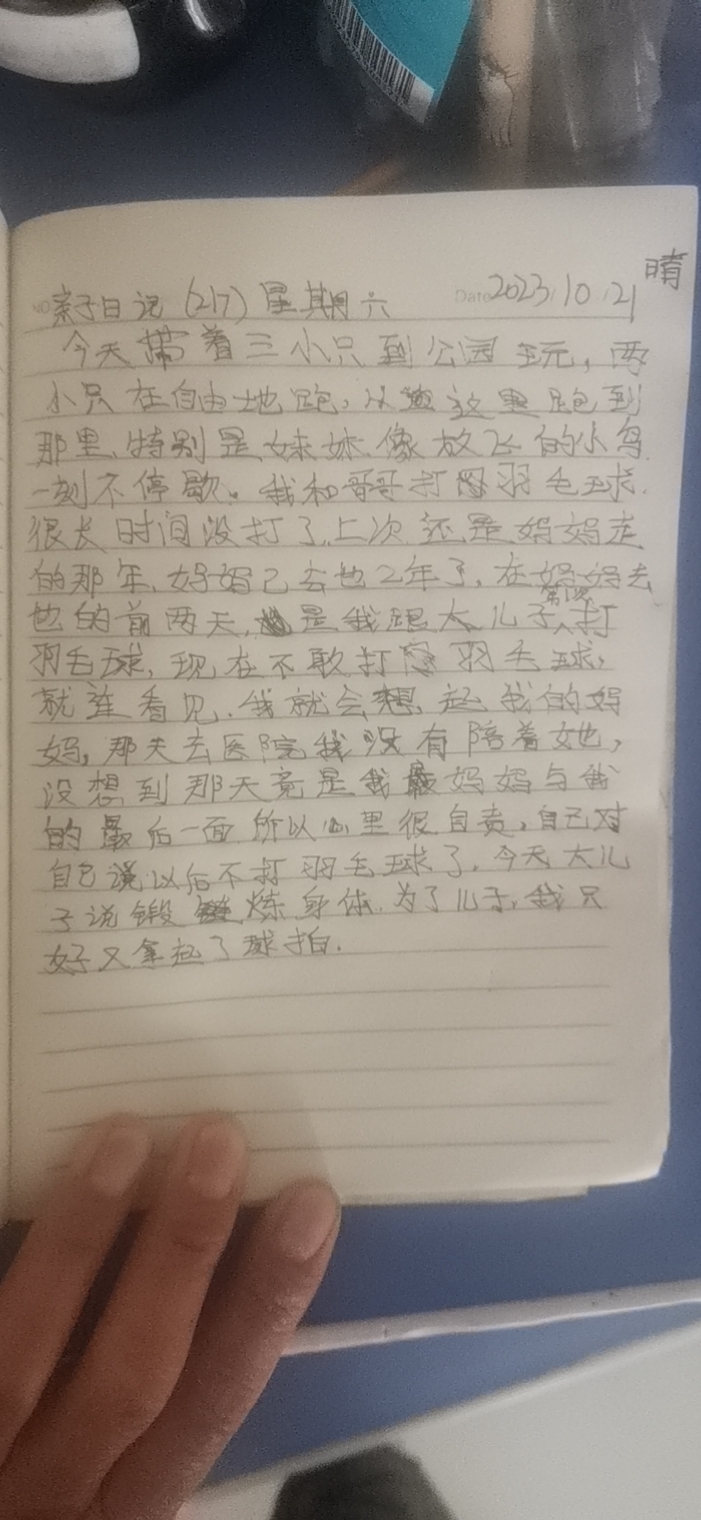 亲子日记（217）星期六 Date 2023.10.21 晴
今天带着三小只到公园玩，两
小只在自由地跑，从这里跑到
那里，特别是妹妹像放飞的小鸟
一刻不停歇。我和哥哥打羽毛球，
很长时间没打了，上次还是妈妈走
的那年，妈妈已去世2年了，在妈妈去
世的前两天，是我跟大儿子打
羽毛球，现在不敢打羽毛球，
就连看见，我就会想起我的妈
妈，那天去医院我没有陪着她，
没想到那天竟是我妈妈与我
的最后一面，所以心里很自责，自己对
自己说以后不打羽毛球了，今天大儿
子说锻炼身体，为了儿子，我只
好又拿起了球拍.